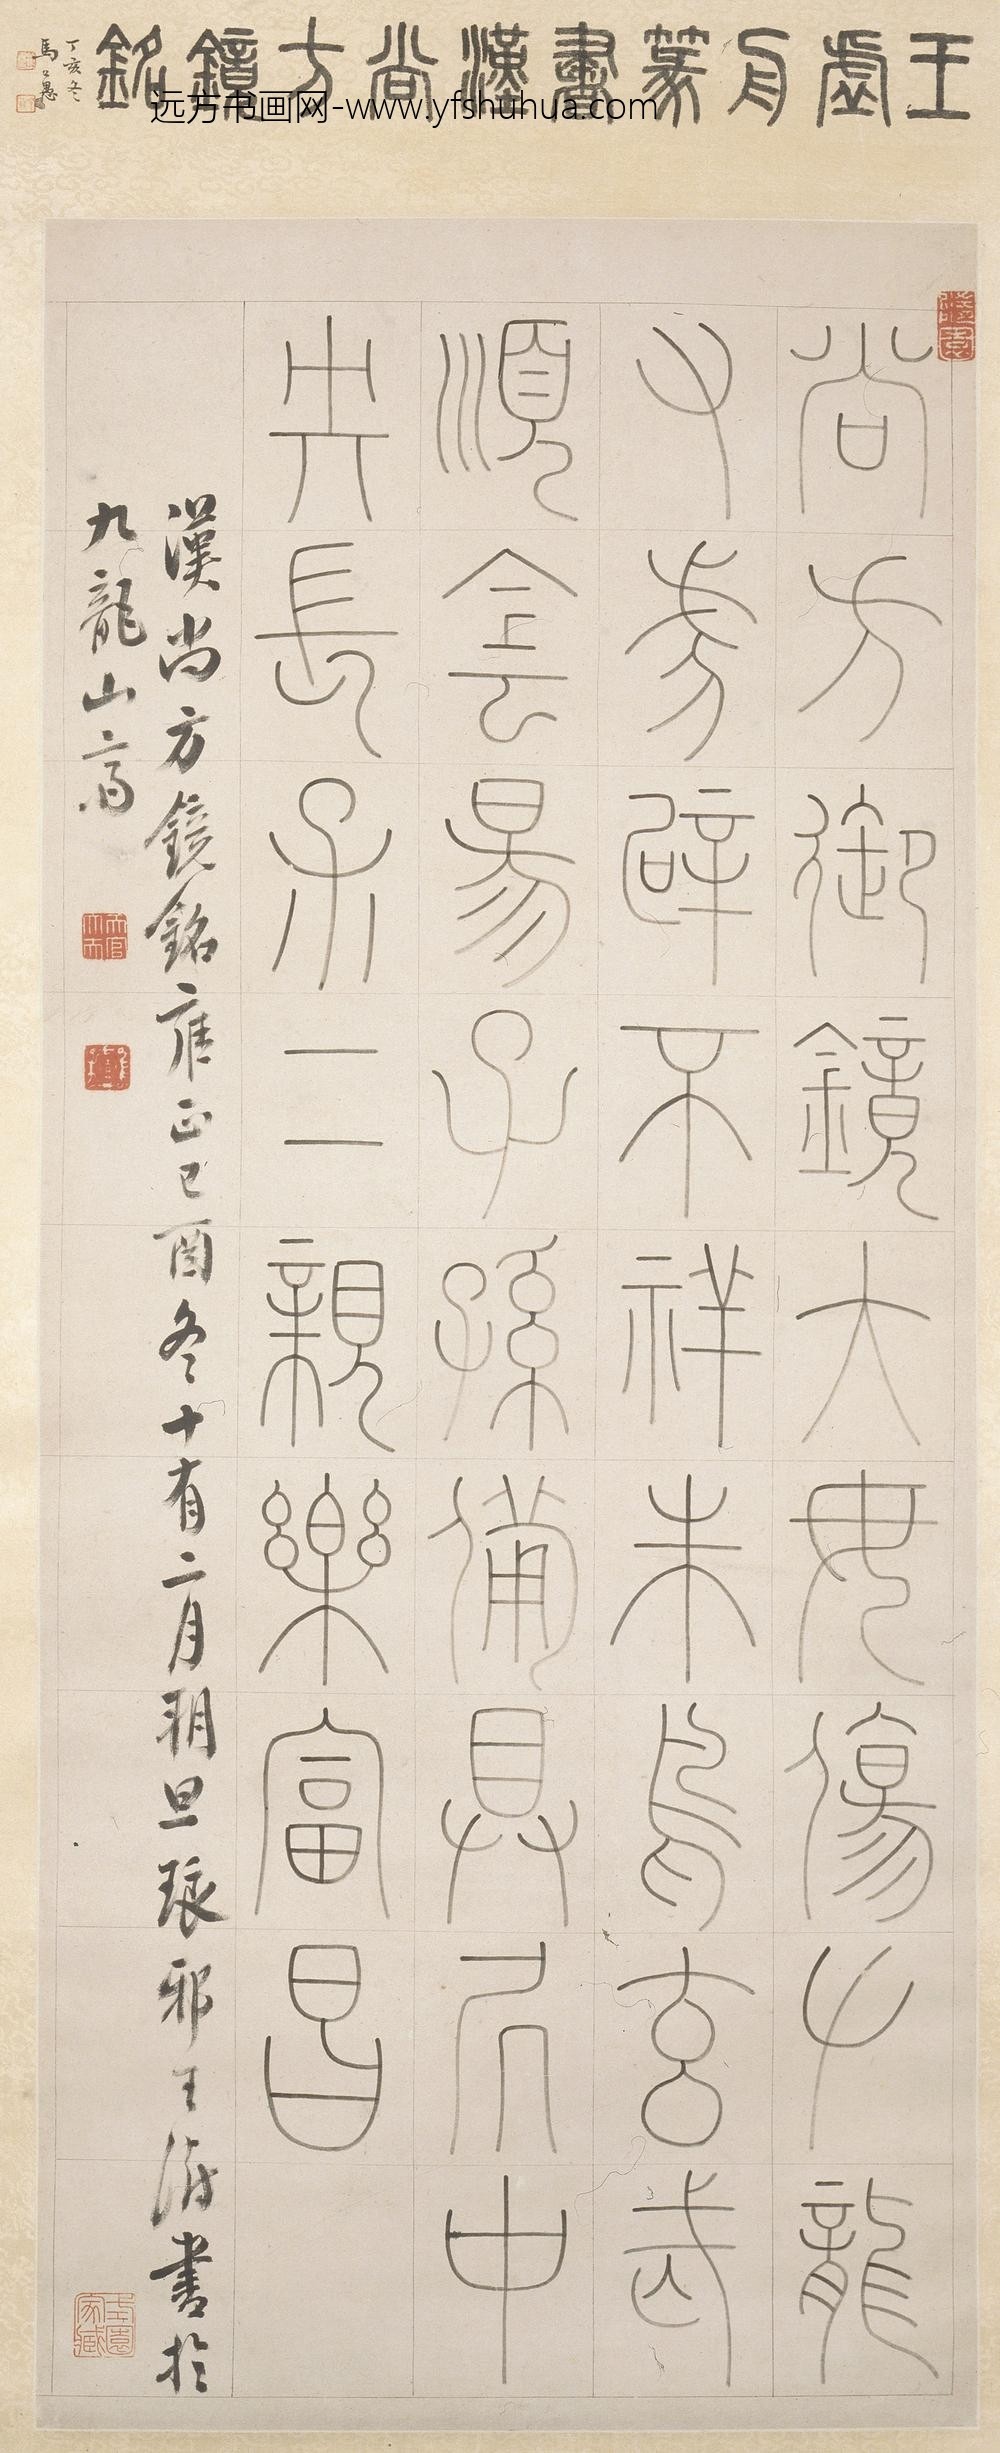 王虛舟篆書漢尚方鏡銘
丁亥冬
馬公愚
远方书画网-www.yfshuhua.com
尚方御鏡大毋傷𠂇龍
又虎辟不祥朱鳥玄武
順侌昜子孫備具凥中
央長保二親樂富昌
漢尚方鏡銘雍正己酉冬十有二月朔旦琅邪王澍書於
九龍山齋